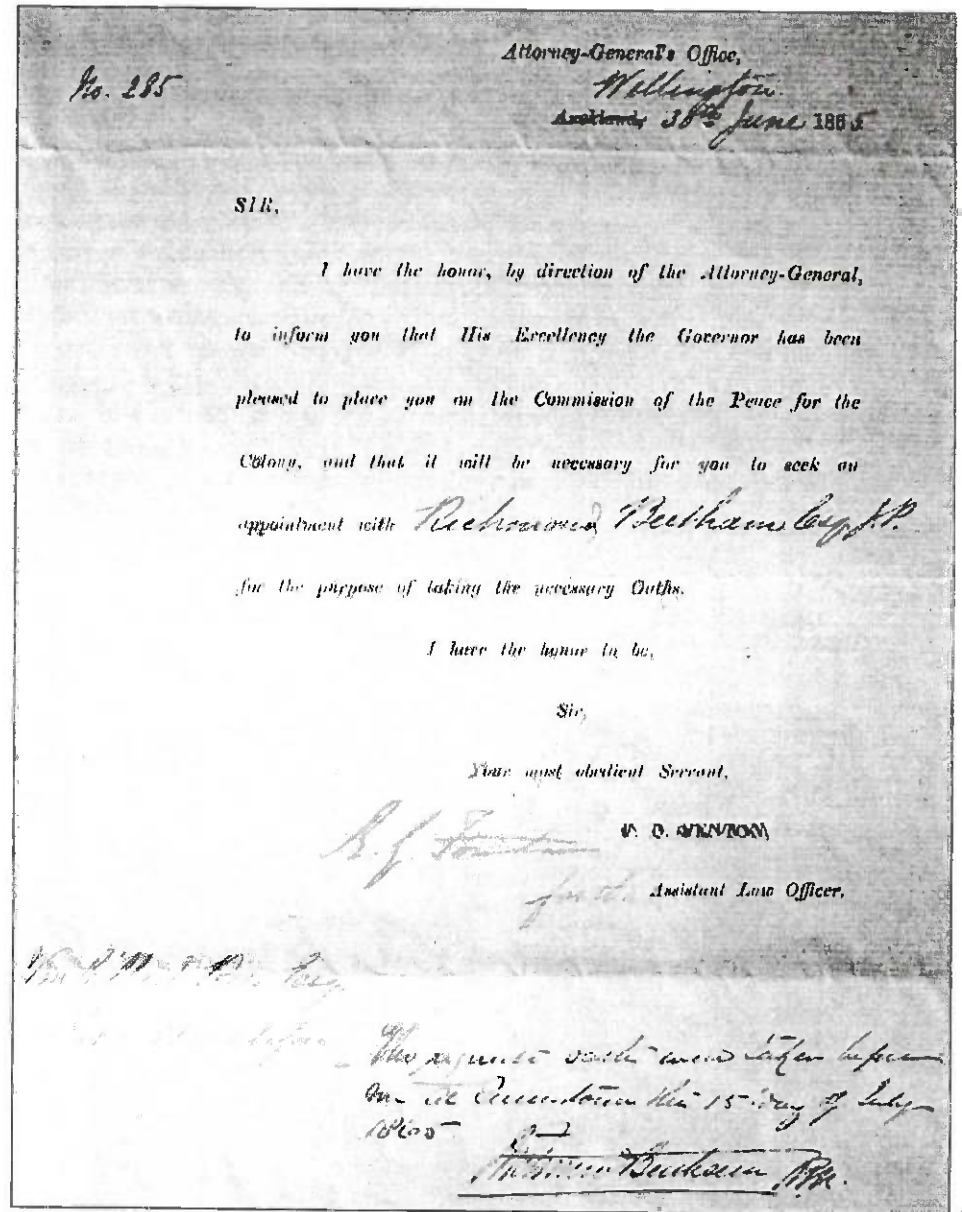 Attorney-General's Office,
No. 285
Wellington.
Auckland, 30th June 1865
SIR,
I have the honor, by direction of the Attorney-General,
to inform you that His Excellency the Governor has been
pleased to place you on the Commission of the Peace for the
Colony, and that it will be necessary for you to seek an
appointment with Richmond Beetham Esq J.P.
for the purpose of taking the necessary Oaths.
I have the honor to be,
Sir,
Your most obedient Servant,
for the Assistant Law Officer.
Esq
The required oaths were taken before
me at Queenstown this 15 day of July
1865
Richmond Beetham R.M.